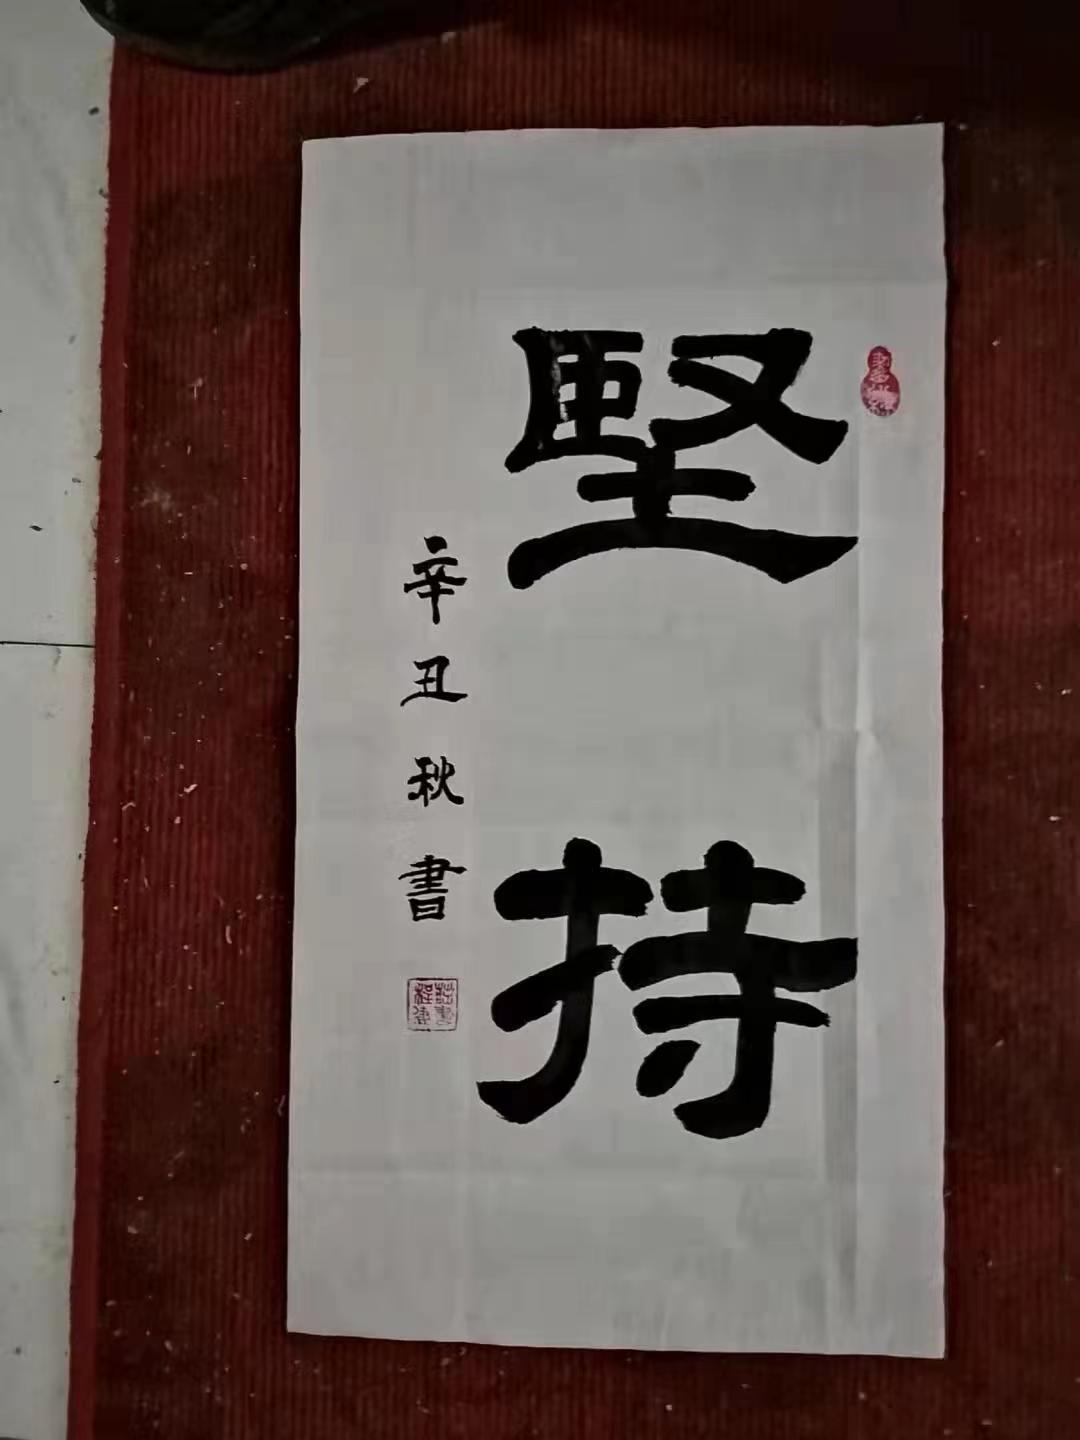 堅持
辛丑秋書